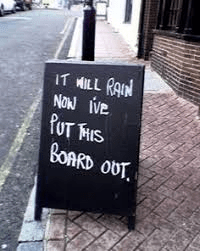 IT WILL RAIN
NOW I'VE
PUT THIS
BOARD OUT.